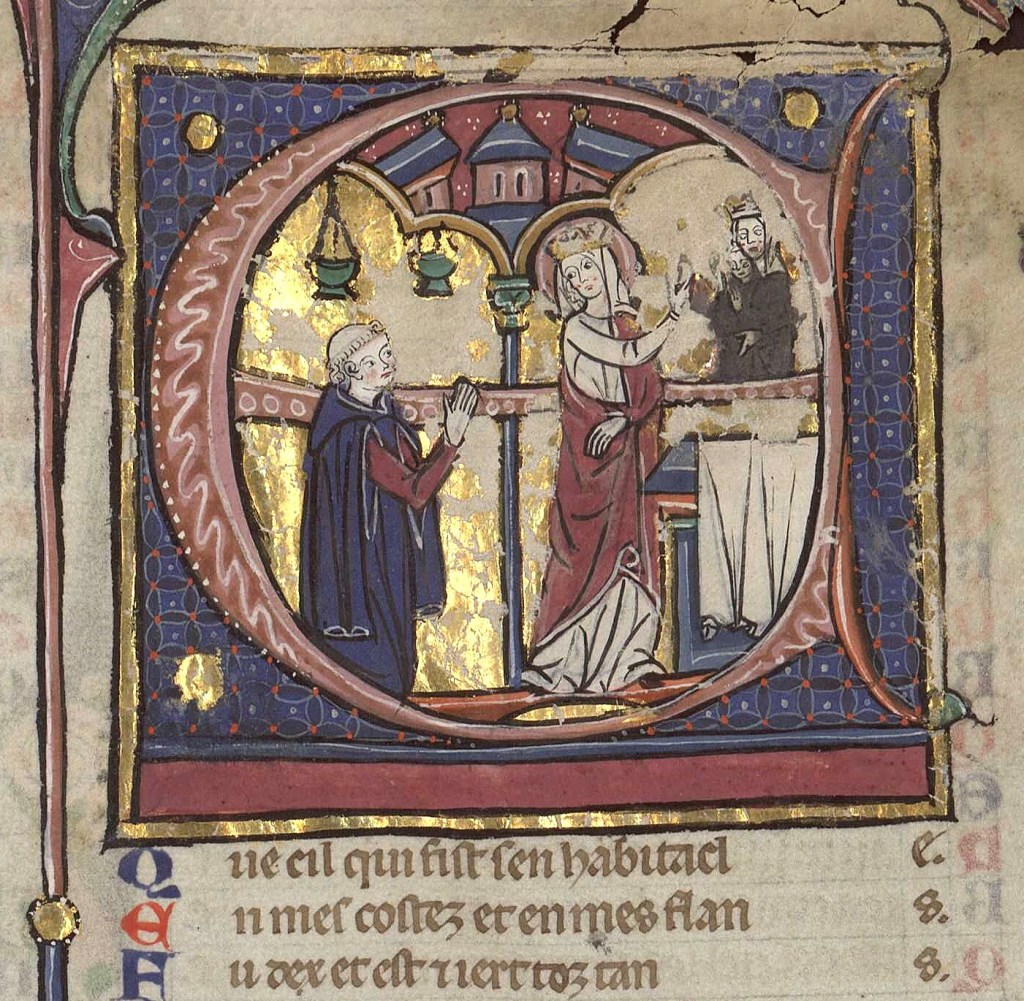 Q ue cil qui fist sen habitacl e.
E n mes costez et en mes flan s.
F u dex et est ⁊ iert toz tan s.